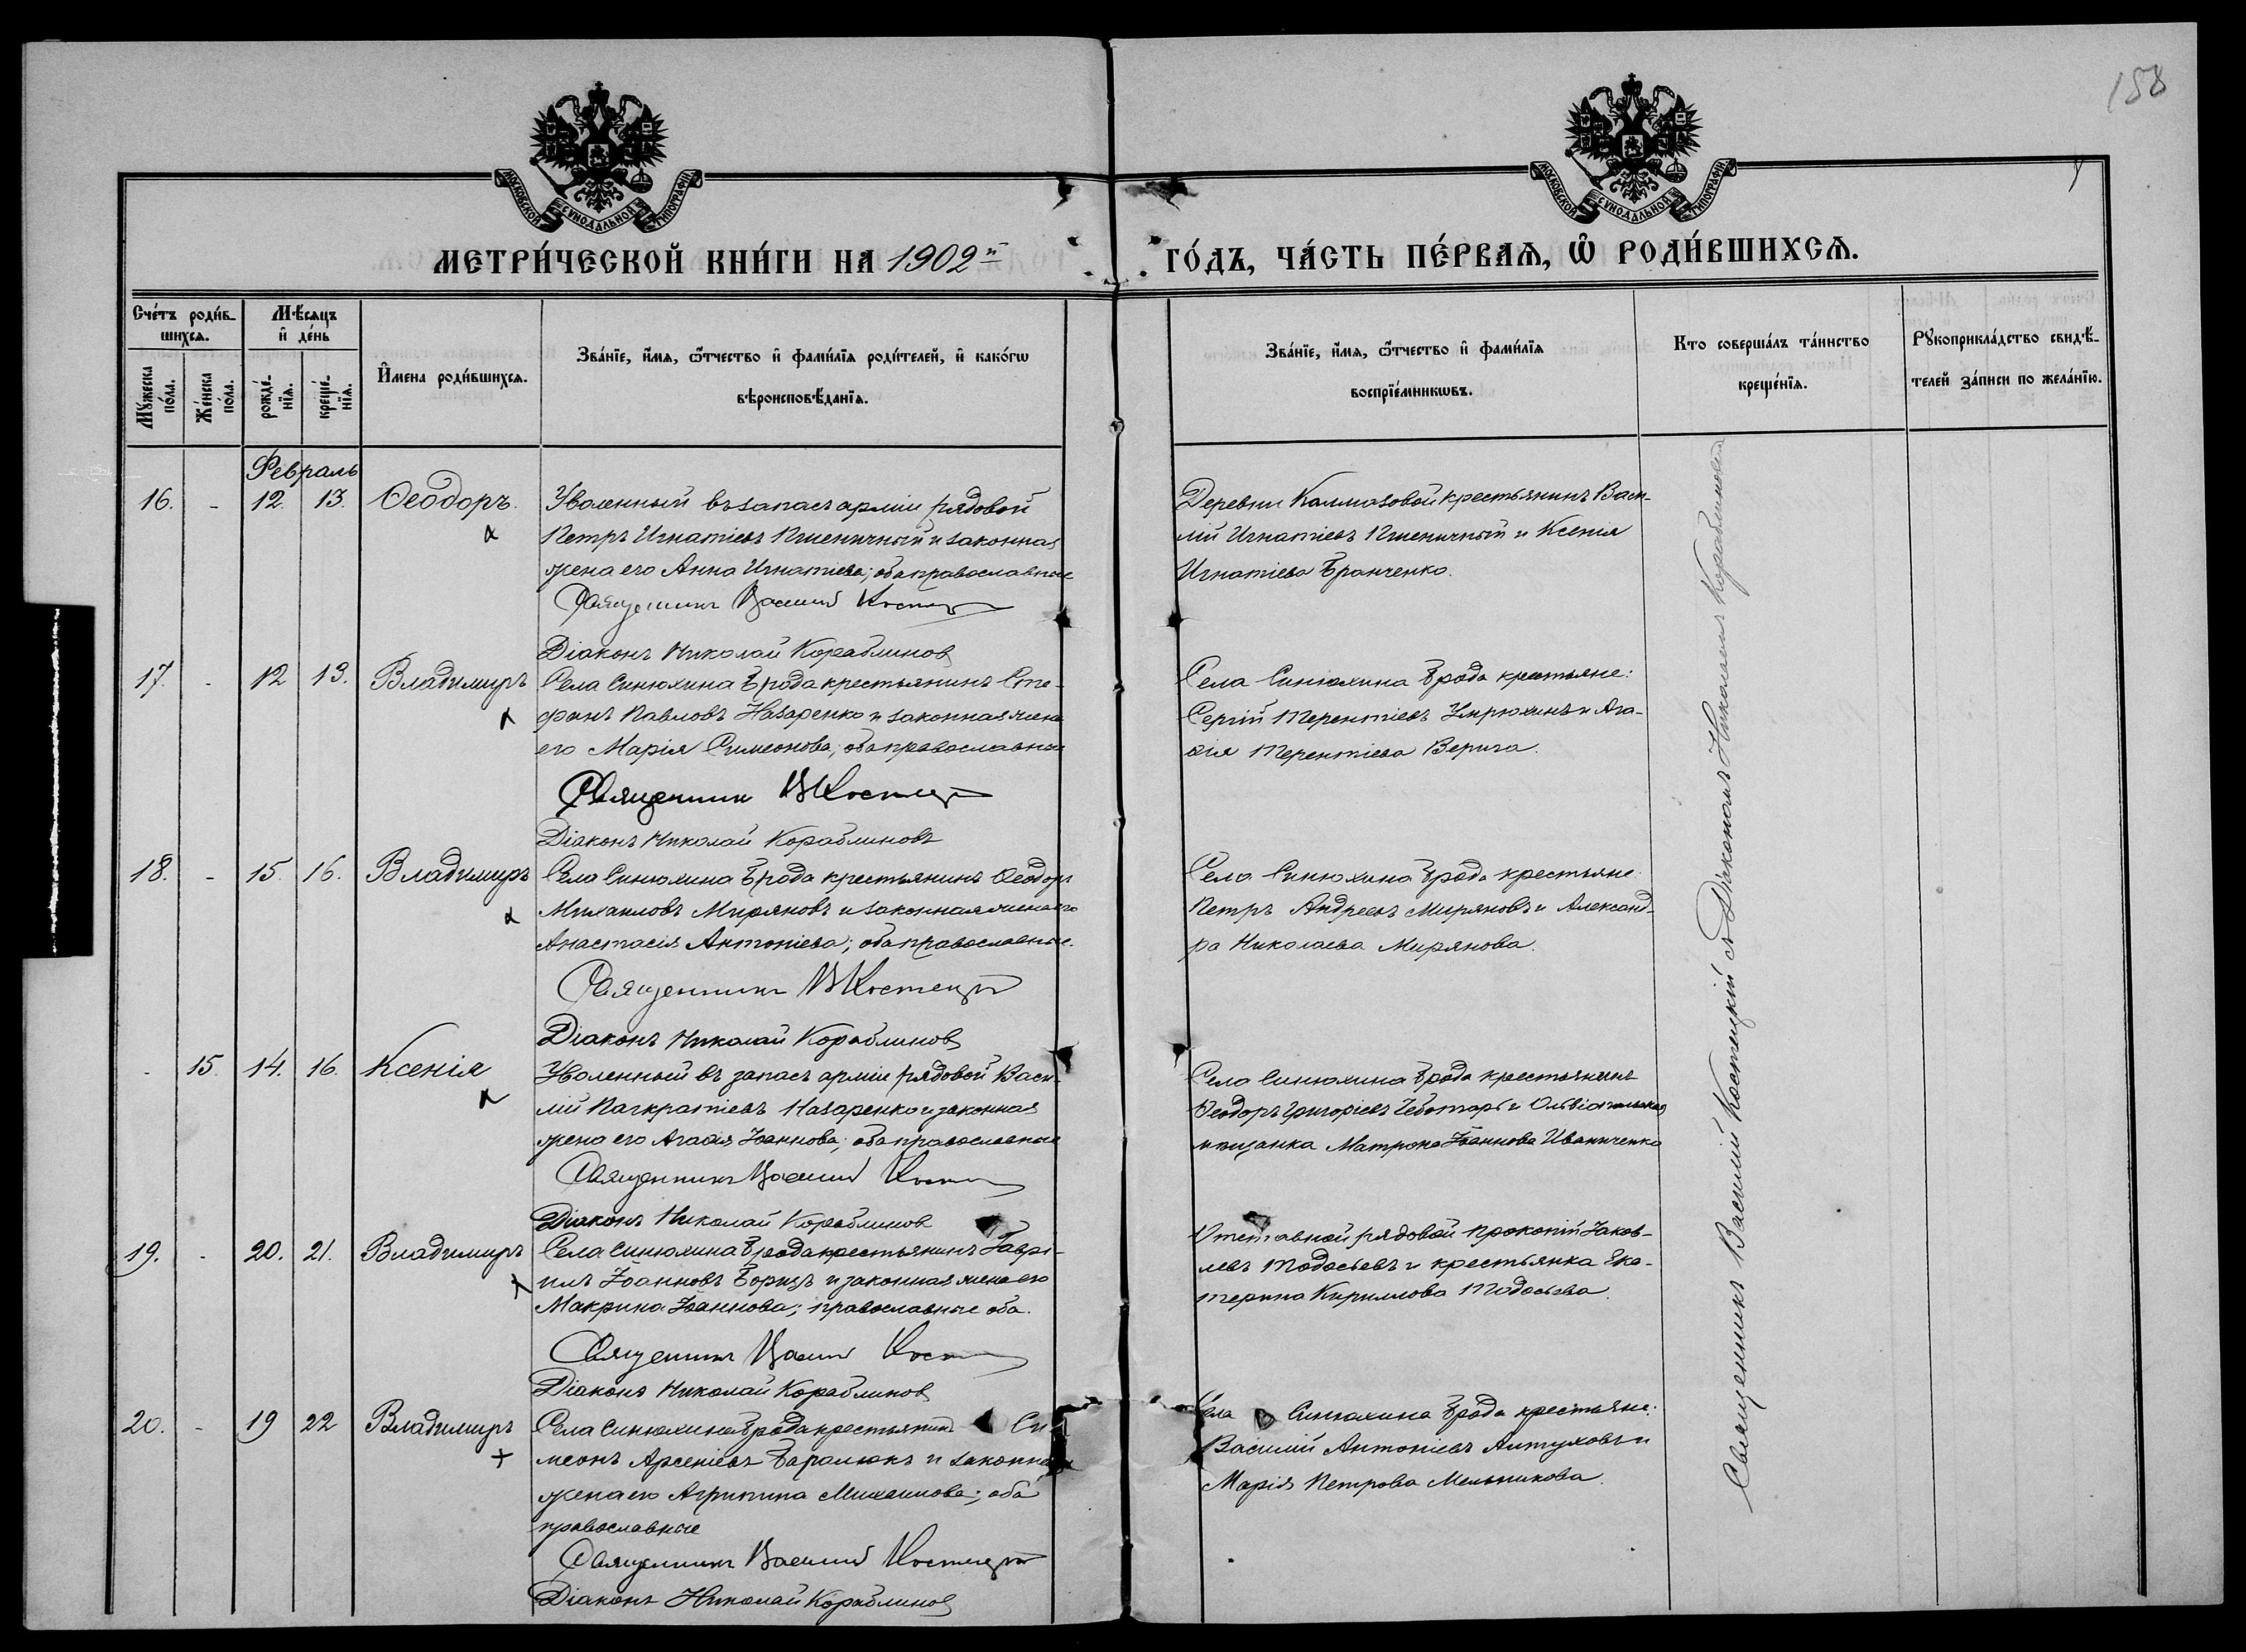 158
МОСКОВСКОЙ СУНОДАЛЬНОЙ ТИПОГРАФІИ
МОСКОВСКОЙ СУНОДАЛЬНОЙ ТИПОГРАФІИ
МЕТРИ́ЧЕСКОЙ КНИ́ГИ НА 1902й ГО́ДЪ, ЧА́СТЬ ПЕ́РВАѦ, Ѡ҆ РОДИ́ВШИХСѦ.
Сче́тъ роди́в-
шихсѧ.
Му́жеска по́ла.
Же́неска по́ла.
Мѣ́сяцъ
и҆ де́нь
рожде́-
нїѧ.
креще́-
нїѧ.
И҆мена роди́вшихсѧ.
Зва́нїе, и҆́мѧ, ѻ҆́тчество и҆ фами́лїѧ роди́телей, и҆ како́гѡ
вѣроисповѣ́данїѧ.
Зва́нїе, и҆́мѧ, ѻ҆́тчество и҆ фами́лїѧ
воспрїе́мникѡвъ.
Кто соверша́лъ та́инство
креще́нїѧ.
Рꙋкоприкла́дство свидѣ́-
телей за́писи по жела́нїю.
Февраль
16. - 12. 13. Ѳеодоръ.
Уволенный въ запасъ арміи рядовой
Петръ Игнатіевъ Пшеничный и законная
жена его Анна Игнатіева; оба православные
Священникъ Василій Костецкій
Діаконъ Николай Кораблиновъ
Деревни Калмазовой крестьянинъ Васи-
лій Игнатіевъ Пшеничный и Ксенія
Игнатіева Бранченко.
17. - 12 13. Владимиръ
Села Синюхина Брода крестьянинъ Сте-
фанъ Павловъ Назаренко и законная жена
его Марія Симеонова; оба православные
Священникъ В Костецкій
Діаконъ Николай Кораблиновъ
Села Синюхина Брода крестьяне:
Сергій Терентіевъ и Ага-
ѳія Терентіева Верига.
18. - 15. 16. Владимиръ
Села Синюхина Брода крестьянинъ Ѳеодоръ
Михаиловъ Миряновъ и законная жена его
Анастасія Антоніева; оба православные.
Священникъ В Костецкій
Діаконъ Николай Кораблиновъ
Села Синюхина Брода крестьяне
Петръ Андреевъ Миряновъ и Александ-
ра Николаева Мирянова.
- 15. 14. 16. Ксенія
Уволенный въ запасъ арміи рядовой Васи-
лій Панкратіевъ Назаренко и законная
жена его Агаѳія Іоаннова; оба православные
Священникъ Василій Костецкій
Діаконъ Николай Кораблиновъ
Села Синюхина Брода крестьянинъ
Ѳеодоръ Григоріевъ Чеботарь и Ольвіопольская
мѣщанка Матрона Іоаннова Иваниченко
19. - 20. 21. Владимиръ
Села Синюхина Брода крестьянинъ Гаврі-
илъ Іоанновъ Борщъ и законная жена его
Макрина Іоаннова; православные оба.
Священникъ Василій Костецкій
Діаконъ Николай Кораблиновъ
Отставной рядовой Прокопій Іаков-
левъ Тодосьевъ и крестьянка Ека-
терина Кириллова Тодосьева.
20. - 19 22 Владимиръ
Села Синюхина Брода крестьянинъ Си-
меонъ Арсеніевъ Баралюкъ и законна
жена его Агрипина Михаилова; оба
православные
Священникъ Василій Костецкій
Діаконъ Николай Кораблиновъ
Села Синюхина Брода крестьяне:
Василій Антоніевъ Алтуховъ и
Марія Петрова Мельникова.
Священникъ Василій Костецкій съ Діакономъ Николаемъ Кораблиновымъ